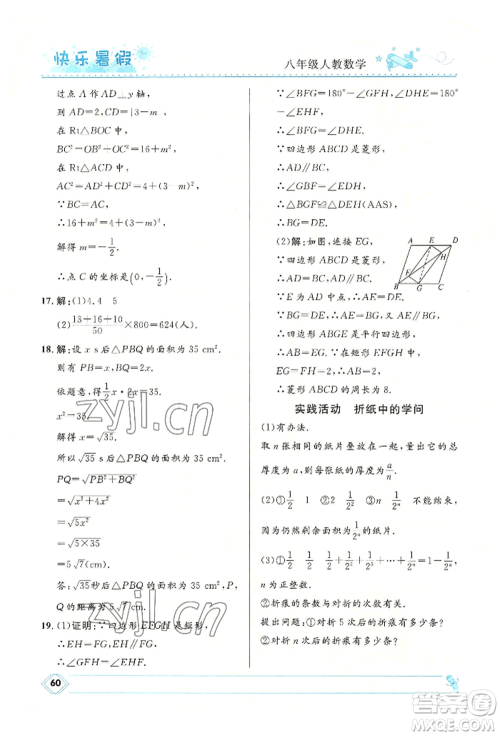 快乐暑假
八年级人教数学
过点 A 作 AD⊥y 轴,
则 AD=2,CD=3-m.
在 Rt△BOC 中,
BC²=OB²+OC²=16+m²,
在 Rt△ACD 中,
AC²=AD²+CD²=4+(3-m)²,
∵BC=AC,
∴16+m²=4+(3-m)²,
解得 m=-1/2.
∴点 C 的坐标是(0,-1/2).
17.解:(1)4.4 5
(2)(13+16+10)/50×800=624(人).
18.解:设 x s后△PBQ 的面积为 35 cm².
则有 PB=x,BQ=2x,
依题意,得1/2x·2x=35,
x²=35,
x=√35.
∴√35 s后△PBQ 的面积为 35 cm².
PQ=√(PB²+BQ²)
=√(x²+4x²)
=√(5x²)
=√(5×35)
=5√7(cm).
答:√35 s后△PBQ 的面积为 35 cm²,P、
Q 的距离为 5√7 cm.
19.(1)证明:∵四边形 EFGH 是矩形,
∴EH=FG,EH∥FG,
∴∠GFH=∠EHF.
∵∠BFG=180°-∠GFH,∠DHE=180°
-∠EHF,
∴∠BFG=∠DHE,
∵四边形 ABCD 是菱形,
∴AD∥BC,
∴∠GBF=∠EDH,
∴△BGF≌△DEH(AAS),
∴BG=DE.
(2)解:如图,连接 EG,
∵四边形 ABCD 是菱形,
∴AD=BC,AD∥BC.
∵E 为 AD 中点,∴AE=ED.
∵BG=DE,∴AE=BG.
∵AE∥BG,
∴四边形 ABGE 是平行四边形,
∴AB=EG.
∵EG=FH=2,∴AB=2,
∴菱形 ABCD 的周长为 8.
A E D
H
F
B G C
实践活动 折纸中的学问
(1)有办法.
取 n 张相同的纸片叠放在一起,用刻度
尺测量其厚度为 a,则每张纸片的厚度
为a/n.
(2)①1/2 1/2 1/2 1/2 ②不能结束,
因为仍然剩余面积为1/2的纸片.
(3)①1/2+1/2²+1/2³+1/2⁴+…+1/2ⁿ,
n 为正整数.
②折痕的条数与对折的次数有关.
提出问题:①对折5次后的折痕有多少条?
②对折 n 次后的折痕有多少条?
60
zyjl.cn
zyjl.cn
答案圈
MXQE.COM